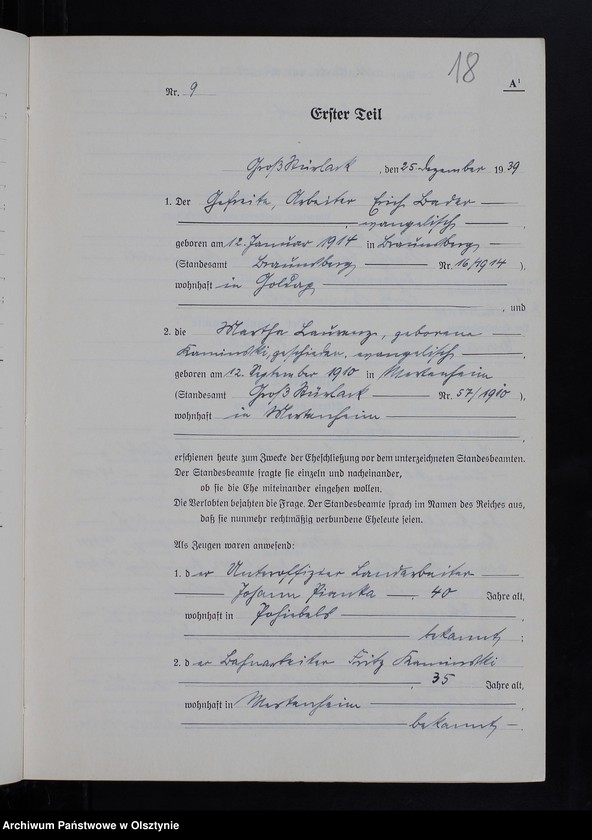 18
A¹
Nr. 9
Erster Teil
Groß Stürlack, den 25. Dezember 1939
1. Der Gefreite, Arbeiter Erich Bader
, evangelisch,
geboren am 12. Januar 1914 in Braunsberg
(Standesamt Braunsberg Nr. 16/1914),
wohnhaft in Goldap
, und
2. die Martha Laurenz, geborene
Kaminski, geschieden, evangelisch,
geboren am 12. September 1910 in Mertenheim
(Standesamt Groß Stürlack Nr. 57/1910),
wohnhaft in Mertenheim
,
erschienen heute zum Zwecke der Eheschließung vor dem unterzeichneten Standesbeamten.
Der Standesbeamte fragte sie einzeln und nacheinander,
ob sie die Ehe miteinander eingehen wollen.
Die Verlobten bejahten die Frage. Der Standesbeamte sprach im Namen des Reiches aus,
daß sie nunmehr rechtmäßig verbundene Eheleute seien.
Als Zeugen waren anwesend:
1. der Unteroffizier Landarbeiter
Johann Pianka, 40 Jahre alt,
wohnhaft in Pohiebels,
bekannt;
2. der Bahnarbeiter Fritz Kaminski
, 35 Jahre alt,
wohnhaft in Mertenheim,
bekannt.
Archiwum Państwowe w Olsztynie